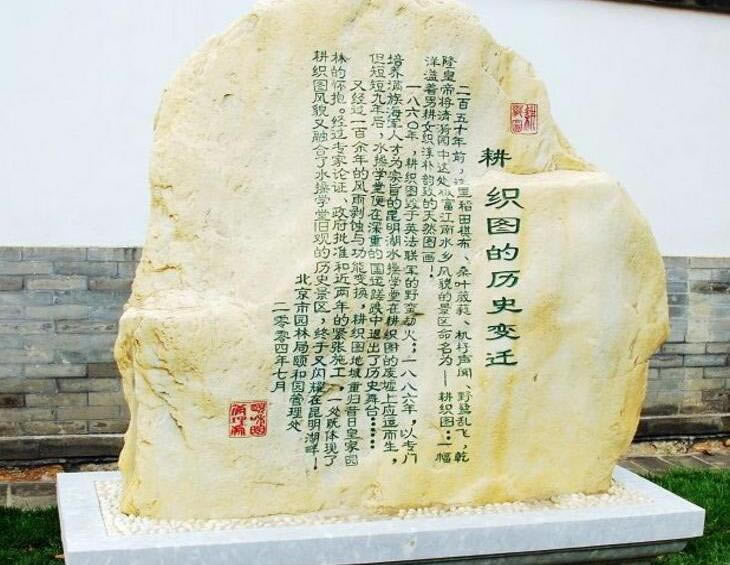 耕织图的历史变迁
二百五十年前，这里稻田棋布、桑叶葳蕤、机杼声闻、野蚕乱飞，乾
隆皇帝将清漪园中这处极富江南水乡风貌的景区命名为——耕织图：一幅
洋溢着男耕女织淳朴韵致的天然图画！
一八六〇年，耕织图毁于英法联军的野蛮劫火；一八八六年，以专门
培养满族海军人才为宗旨的昆明湖水操学堂在耕织图的废墟上应运而生，
但短短九年后，水操学堂便在深重的国运蹉跎中退出了历史舞台……
又经过一百余年的风雨剥蚀与功能变换，耕织图地域重归昔日皇家园
林的怀抱。经过专家论证、政府批准和近两年的紧张施工，一处既体现了
耕织图风貌又融合了水操学堂旧观的历史景区，终于又闪耀在昆明湖畔！
北京市园林局颐和园管理处
二零零四年七月